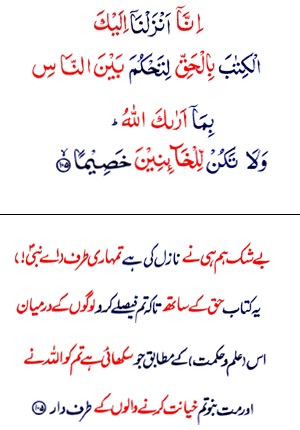 اِنَّاۤ اَنْزَلْنَاۤ اِلَيْكَ
الْكِتٰبَ بِالْحَقِّ لِتَحْكُمَ بَيْنَ النَّاسِ
بِمَاۤ اَرٰىكَ اللّٰهُ ؕ
وَلَا تَكُنْ لِّلْخَآئِنِيْنَ خَصِيْمًا ۙ ﴿۱۰۵﴾
بے شک ہم ہی نے نازل کی ہے تمہاری طرف (اے نبیؐ!)
یہ کتاب حق کے ساتھ تاکہ تم فیصلے کرو لوگوں کے درمیان
اس (علم و حکمت) کے مطابق جو سکھائی ہے تم کو اللہ نے
اور مت بنو تم خیانت کرنے والوں کے طرف دار ﴿۱۰۵﴾